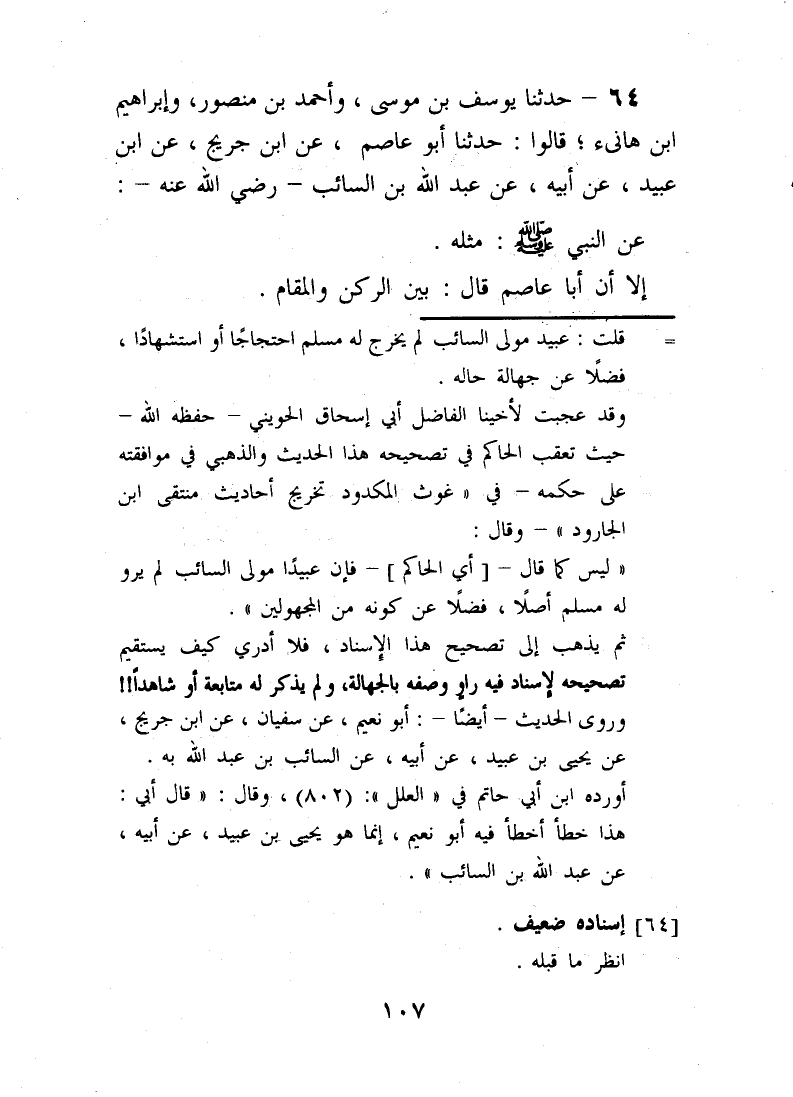 ٦٤ – حدثنا يوسف بن موسى ، وأحمد بن منصور، وإبراهيم
ابن هانىء ؛ قالوا : حدثنا أبو عاصم ، عن ابن جريج ، عن ابن
عبيد ، عن أبيه ، عن عبد الله بن السائب – رضي الله عنه – :
عن النبي ﷺ : مثله .
إلا أن أبا عاصم قال : بين الركن والمقام .
= قلت : عبيد مولى السائب لم يخرج له مسلم احتجاجًا أو استشهادًا ،
فضلًا عن جهالة حاله .
وقد عجبت لأخينا الفاضل أبي إسحاق الحويني – حفظه الله –
حيث تعقب الحاكم في تصحيحه هذا الحديث والذهبي في موافقته
على حكمه – في « غوث المكدود تخريج أحاديث منتقى ابن
الجارود » – وقال :
« ليس كما قال – [ أي الحاكم ] – فإن عبيدًا مولى السائب لم يرو
له مسلم أصلًا ، فضلًا عن كونه من المجهولين » .
ثم يذهب إلى تصحيح هذا الإسناد ، فلا أدري كيف يستقيم
تصحيحه لإسناد فيه راوٍ وصفه بالجهالة، ولم يذكر له متابعة أو شاهداً!!
وروى الحديث – أيضًا – : أبو نعيم ، عن سفيان ، عن ابن جريج ،
عن يحيى بن عبيد ، عن أبيه ، عن السائب بن عبد الله به .
أورده ابن أبي حاتم في « العلل »: (٨٠٢) ، وقال : « قال أبي :
هذا خطأ أخطأ فيه أبو نعيم ، إنما هو يحيى بن عبيد ، عن أبيه ،
عن عبد الله بن السائب » .
[٦٤] إسناده ضعيف .
انظر ما قبله .
١٠٧